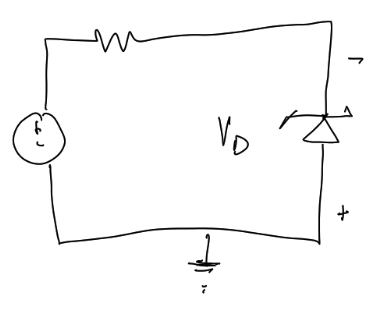 -
+
-
V_D
+